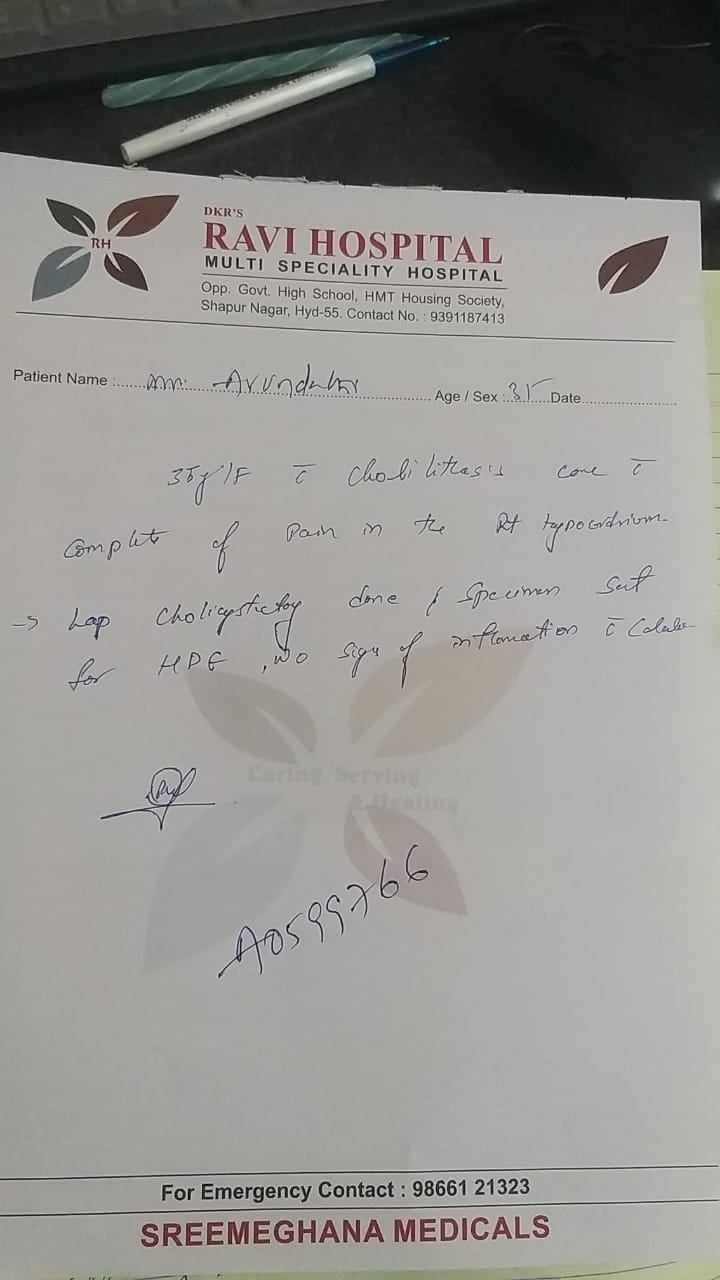 RH
DKR'S
RAVI HOSPITAL
MULTI SPECIALITY HOSPITAL
Opp. Govt. High School, HMT Housing Society,
Shapur Nagar, Hyd-55. Contact No. : 9391187413
Patient Name : Age / Sex : 35 Date
35y/F c̄ Choli lithasis come c̄
Complete of Pain in the Rt hypocordrium
-> Lap done & Specimen Sent
for HPE, No Sign of inflamation c̄
Caring, Serving
& Healing
A0599766
For Emergency Contact : 98661 21323
SREEMEGHANA MEDICALS